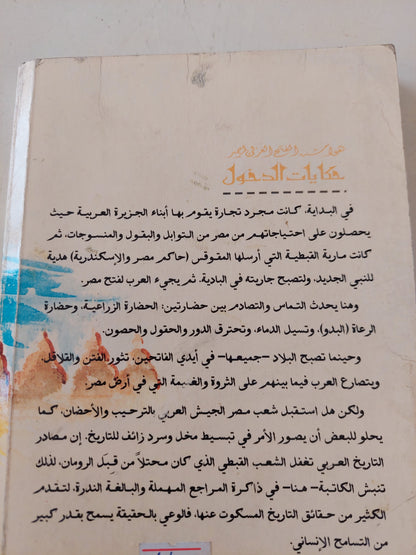 هوامش الفتح العربي لمصر
حكايات الدخول
في البداية، كانت مجرد تجارة يقوم بها أبناء الجزيرة العربية حيث
يحصلون على احتياجاتهم من مصر من التوابل والبقول والمنسوجات، ثم
كانت مارية القبطية التي أرسلها المقوقس (حاكم مصر والإسكندرية) هدية
للنبي الجديد، ولتصبح جاريته في البادية، ثم يجيء العرب لفتح مصر.
وهنا يحدث التماس والتصادم بين حضارتين: الحضارة الزراعية، وحضارة
الرعاة (البدو)، وتسيل الدماء، وتحترق الدور والحقول والحصون.
وحينما تصبح البلاد -جميعها- في أيدي الفاتحين، تثور الفتن والقلاقل،
ويتصارع العرب فيما بينهم على الثروة والغنيمة التي في أرض مصر.
ولكن هل استقبل شعب مصر الجيش العربي بالترحيب والأحضان، كما
يحلو للبعض أن يصور الأمر في تبسيط مخل وسرد زائف للتاريخ، إن مصادر
التاريخ العربي تغفل الشعب القبطي الذي كان محتلاً من قبَل الرومان، لذلك
تنبش الكاتبة- هنا- في ذاكرة المراجع المهملة والبالغة الندرة، لتقدم
الكثير من حقائق التاريخ المسكوت عنها، فالوعي بالحقيقة يسمح بقدر كبير
من التسامح الإنساني.